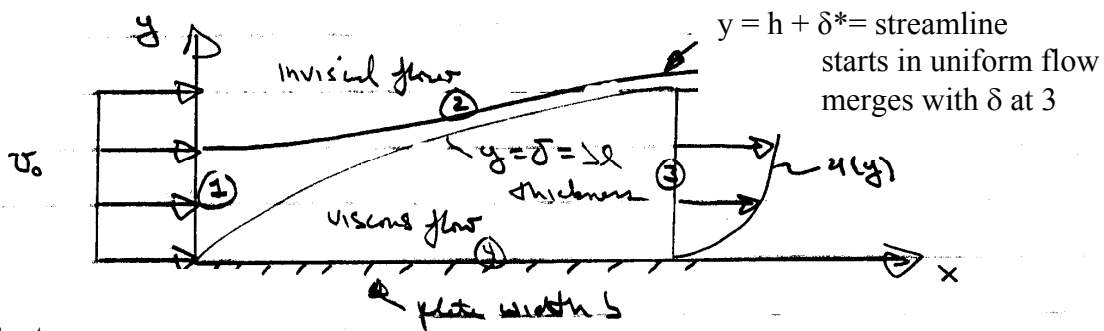 y
y = h + δ*= streamline
starts in uniform flow
merges with δ at 3
inviscid flow
2
y = δ = δl
thickness
υ₀
1
3
u(y)
viscous flow
4
x
plate width b